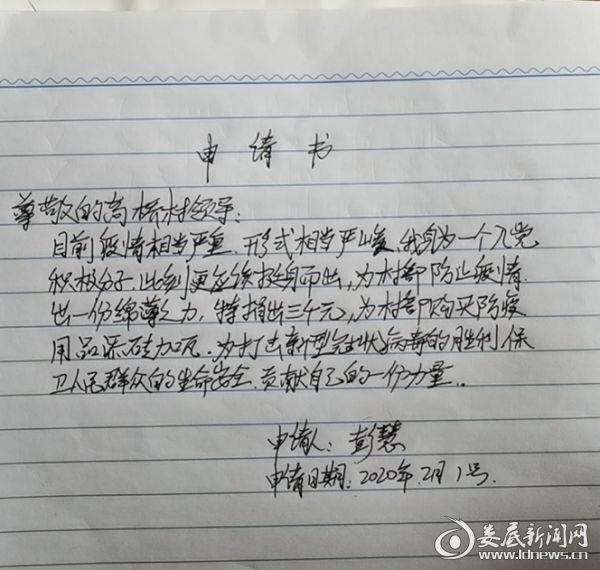 申请书
尊敬的高桥村领导：
目前疫情相当严重，形式相当严峻，我身为一个入党
积极分子，此刻更应该挺身而出，为村部防止疫情
出一份绵薄之力，特捐出三千元，为村部购买防疫
用品添砖加瓦。为打击新型冠状病毒的胜利，保
卫人民群众的生命安全，贡献自己的一份力量。
申请人：彭慧
申请日期：2020年2月1号.
娄底新闻网
www.ldnews.cn